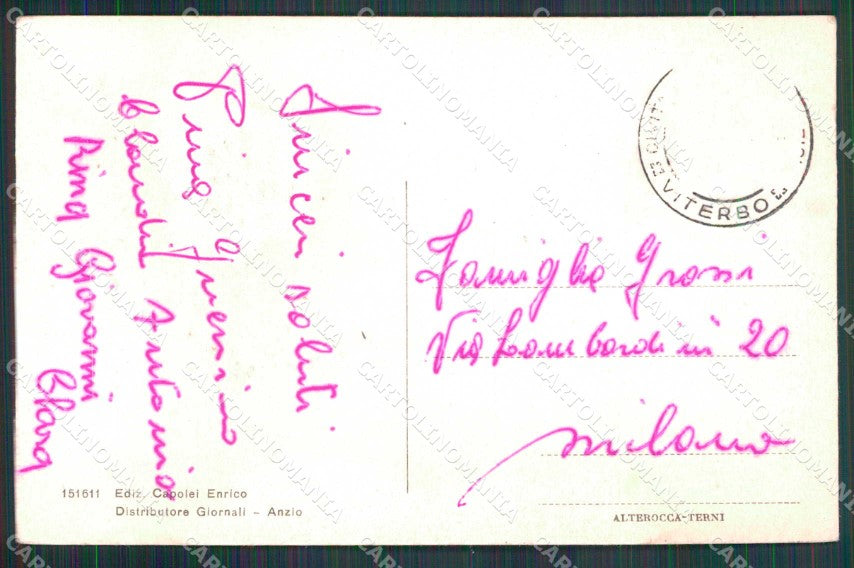 Sinceri saluti
Pina
Claudio Antonio
Pina Giovanni
Clara
Famiglia Grossi
Via Lombardini 20
Milano
VITERBO
151611 Ediz. Capolei Enrico
Distributore Giornali - Anzio
ALTEROCCA-TERNI
CARTOLINOMANIA